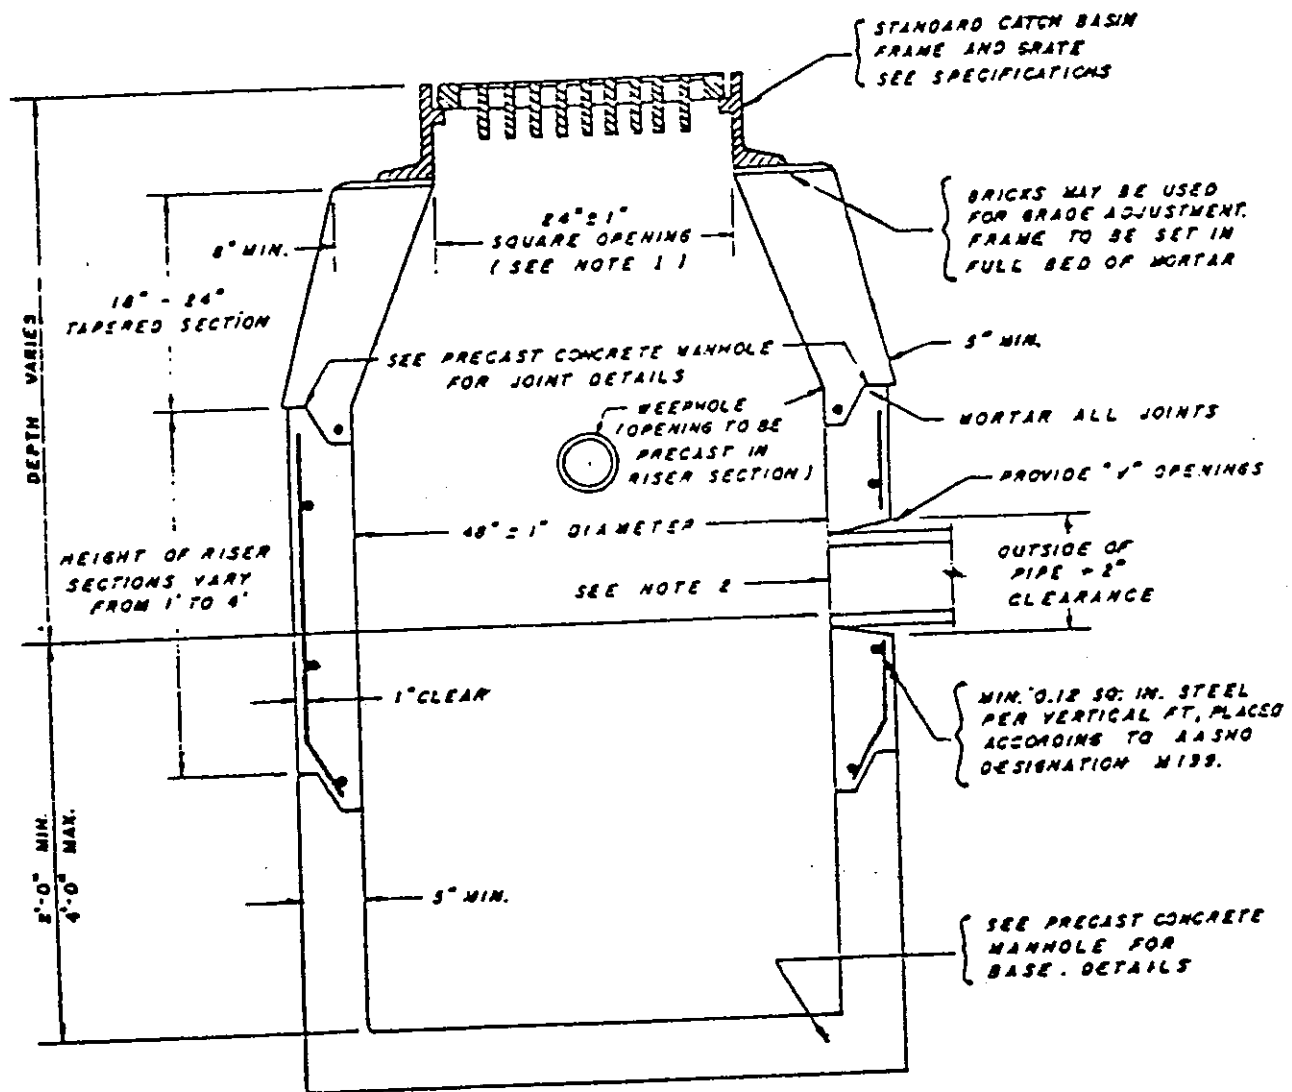 STANDARD CATCH BASIN
FRAME AND GRATE
SEE SPECIFICATIONS
BRICKS MAY BE USED
FOR GRADE ADJUSTMENT.
FRAME TO BE SET IN
FULL BED OF MORTAR
24" ± 1"
SQUARE OPENING
( SEE NOTE 1 )
8" MIN.
18" - 24"
TAPERED SECTION
DEPTH VARIES
5" MIN.
SEE PRECAST CONCRETE MANHOLE
FOR JOINT DETAILS
WEEPHOLE
(OPENING TO BE
PRECAST IN
RISER SECTION)
MORTAR ALL JOINTS
PROVIDE "V" OPENINGS
48" ± 1" DIAMETER
HEIGHT OF RISER
SECTIONS VARY
FROM 1' TO 4'
SEE NOTE 2
OUTSIDE OF
PIPE + 2"
CLEARANCE
1" CLEAR
MIN. 0.12 SQ. IN. STEEL
PER VERTICAL FT, PLACED
ACCORDING TO AASHO
DESIGNATION M199.
2'-0" MIN.
4'-0" MAX.
5" MIN.
SEE PRECAST CONCRETE
MANHOLE FOR
BASE . DETAILS